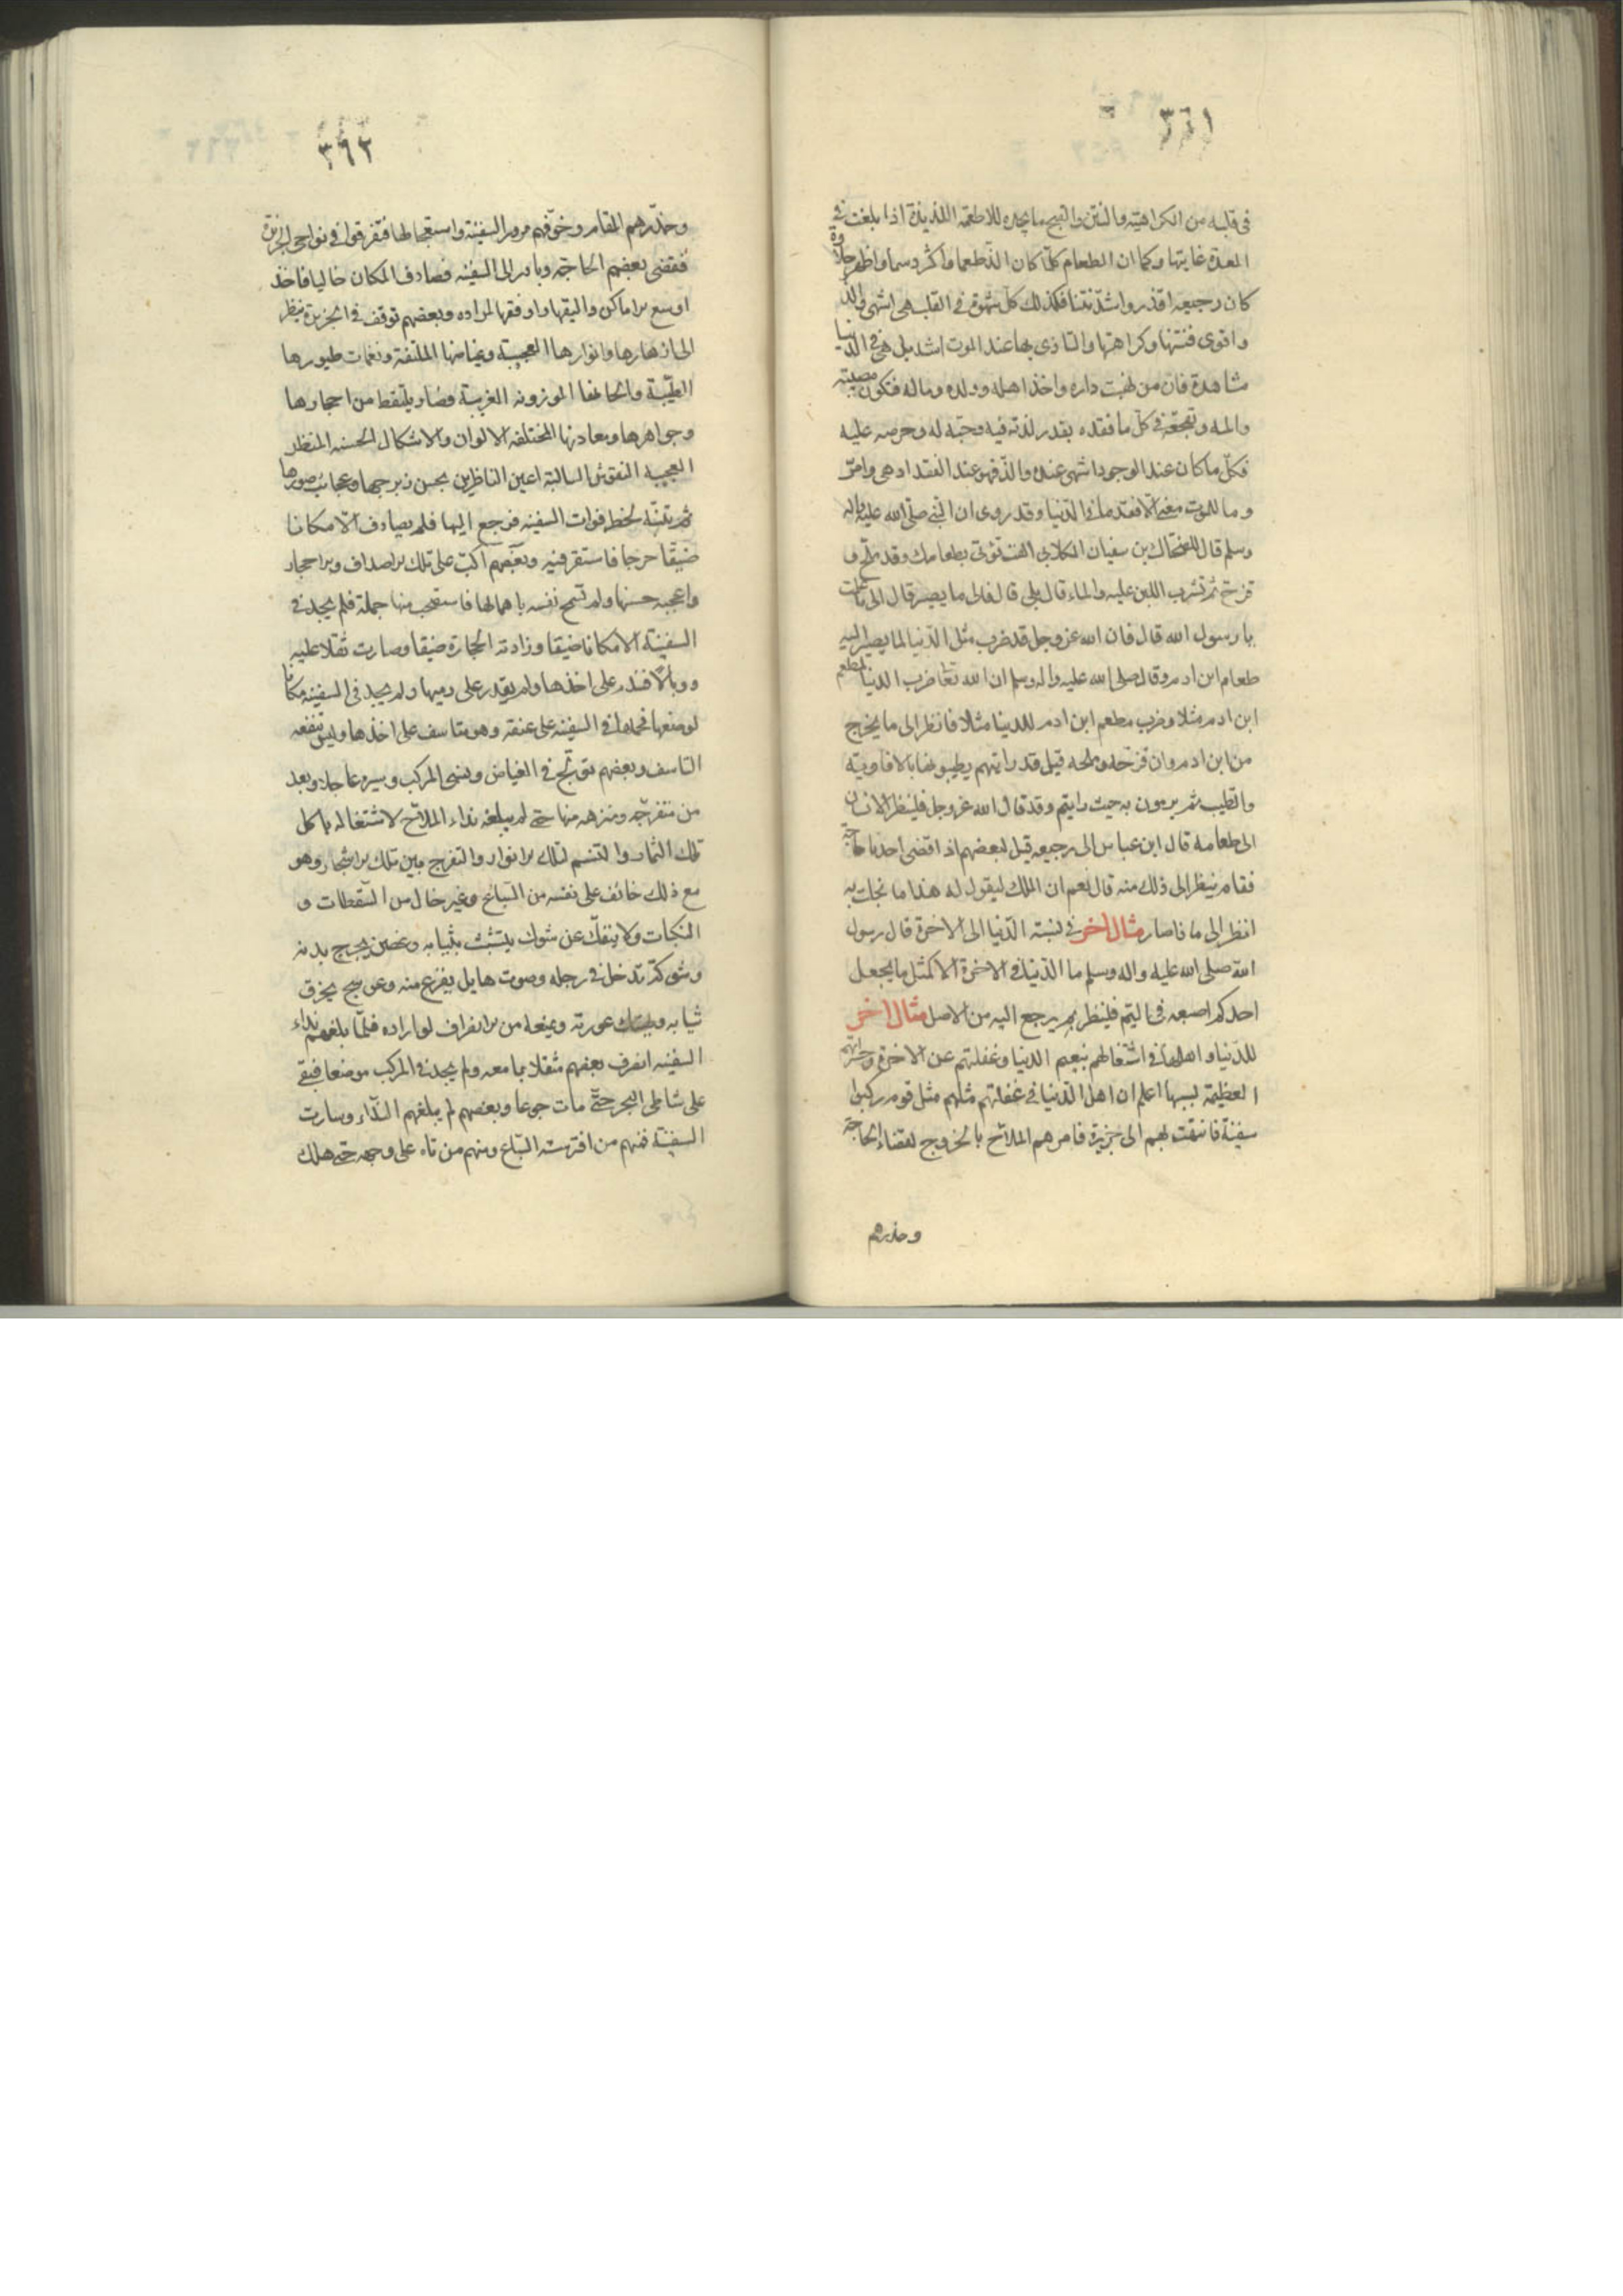 ٣٦١
في قلبه من الكراهية والنتن والقبح ما يجده للاطعمة اللذيذة اذا بلغت في
المعدة غايتها وكما ان الطعام كلما كان الذ طعما واكثر دسما واظهر حلاوة
كان رجيعه اقذر واشد نتنا فكذلك كل شهوة في القلب هي اشهى والذ
واقوى فنتنها وكراهتها والتاذى بها عند الموت اشد بل هي في الدنيا
مشاهدة فان من نهبت داره واخذ اهله وولده وماله فتكون مصيبته
والمه وتفجعه في كل ما فقده بقدر لذته فيه وحبه له وحرصه عليه
فكل ما كان عند الوجود اشهى عنده والذ فهو عند الفقد ادهى وامر
وما للموت معنى الا فقد ما في الدنيا وقد روى ان النبي صلى الله عليه واله
وسلم قال للضحاك بن سفيان الكلابي الست تؤتى بطعامك وقد ملح و
قزح ثم تشرب اللبن عليه والماء قال بلى قال فالى ما يصير قال الى ما علمت
يا رسول الله قال فان الله عز وجل قد ضرب مثل الدنيا لما يصير اليه
طعام ابن ادم وقال صلى الله عليه واله وسلم ان الله تعا ضرب الدنيا لمطعم
ابن ادم مثلا وضرب مطعم ابن ادم للدنيا مثلا فانظر الى ما يخرج
من ابن ادم وان قزحه وملحه قيل قد رايتهم يطيبونها بالافاويه
والطيب ثم يرمون به حيث رايتم وقد قال الله عز وجل فلينظر الانسان
الى طعامه قال ابن عباس الى رجيعه قيل لبعضهم اذا قضى احدنا حاجة
فقام ينظر الى ذلك منه قال نعم ان الملك ليقول له هذا ما بخلت به
انظر الى ما ذا صار مثال اخر في نسبته الدنيا الى الاخرة قال رسول
الله صلى الله عليه واله وسلم ما الدنيا في الاخرة الا كمثل ما يجعل
احدكم اصبعه في اليم فلينظر بم يرجع اليه من الاصل مثال اخر
للدنيا واهلها في اشتغالهم بنعيم الدنيا وغفلتهم عن الاخرة وحسراتهم
العظيمة بسببها اعلم ان اهل الدنيا في غفلتهم مثلهم مثل قوم ركبوا
سفينة فانتهت بهم الى جزيرة فامرهم الملاح بالخروج لقضاء الحاجة
وحذرهم
٣٦٢
وحذرهم المقام وخوفهم مرور السفينة واستعجالها فتفرقوا في نواحي الجزيرة
فقضى بعضهم الحاجة وبادر الى السفينه فصادف المكان خاليا فاخذ
اوسع الاماكن واليقها واوفقها لمراده وبعضهم توقف في الجزيرة ينظر
الى ازهارها وانوارها العجيبة وغياضها الملتفة ونغمات طيورها
الطيبة والحانها الموزونه الغريبة وصار يلتقط من احجارها
وجواهرها ومعادنها المختلفة الالوان والاشكال الحسنه المنظر
العجيبه النقوش السالبة اعين الناظرين بحسن زبرجها وعجائب صورها
ثم تنبه لخطر فوات السفينه فرجع اليها فلم يصادف الا مكانا
ضيقا حرجا فاستقر فيه وبعضهم اكب على تلك الاصداف والاحجار
واعجبه حسنها ولم تسمح نفسه باهمالها فاستصحب منها جملة فلم يجد في
السفينة الا مكانا ضيقا وزادته الحجارة ضيقا وصارت ثقلا عليه
ووبالا فندم على اخذها ولم يقدر على رميها ولم يجد في السفينه مكانا
لوضعها فحملها في السفينه على عنقه وهو متاسف على اخذها وليس ينفعه
التاسف وبعضهم تولج في الغياض ونسى المركب وبعد
من متفرجه ومتنزهه منها حتى لم يبلغه نداء الملاح لاشتغاله باكل
تلك الثمار والتنسم لتلك الانوار والتفرج بين تلك الاشجار وهو
مع ذلك خائف على نفسه من السباع وغير خال من السقطات و
النكبات ولا ينفك عن شوك يتشبث بثيابه وغصن يجرح بدنه
وشوكة تدخل في رجله وصوت هايل يفزع منه وعوسج يخرق
ثيابه ويهتك عورته ويمنعه من الانصراف لو اراده فلما بلغهم نداء
السفينه انصرف بعضهم مثقلا بما معه ولم يجد في المركب موضعا فبقى
على شاطى البحر حتى مات جوعا وبعضهم لم يبلغهم النداء وسارت
السفينة فمنهم من افترسته السباع ومنهم من تاه على وجهه حتى هلك